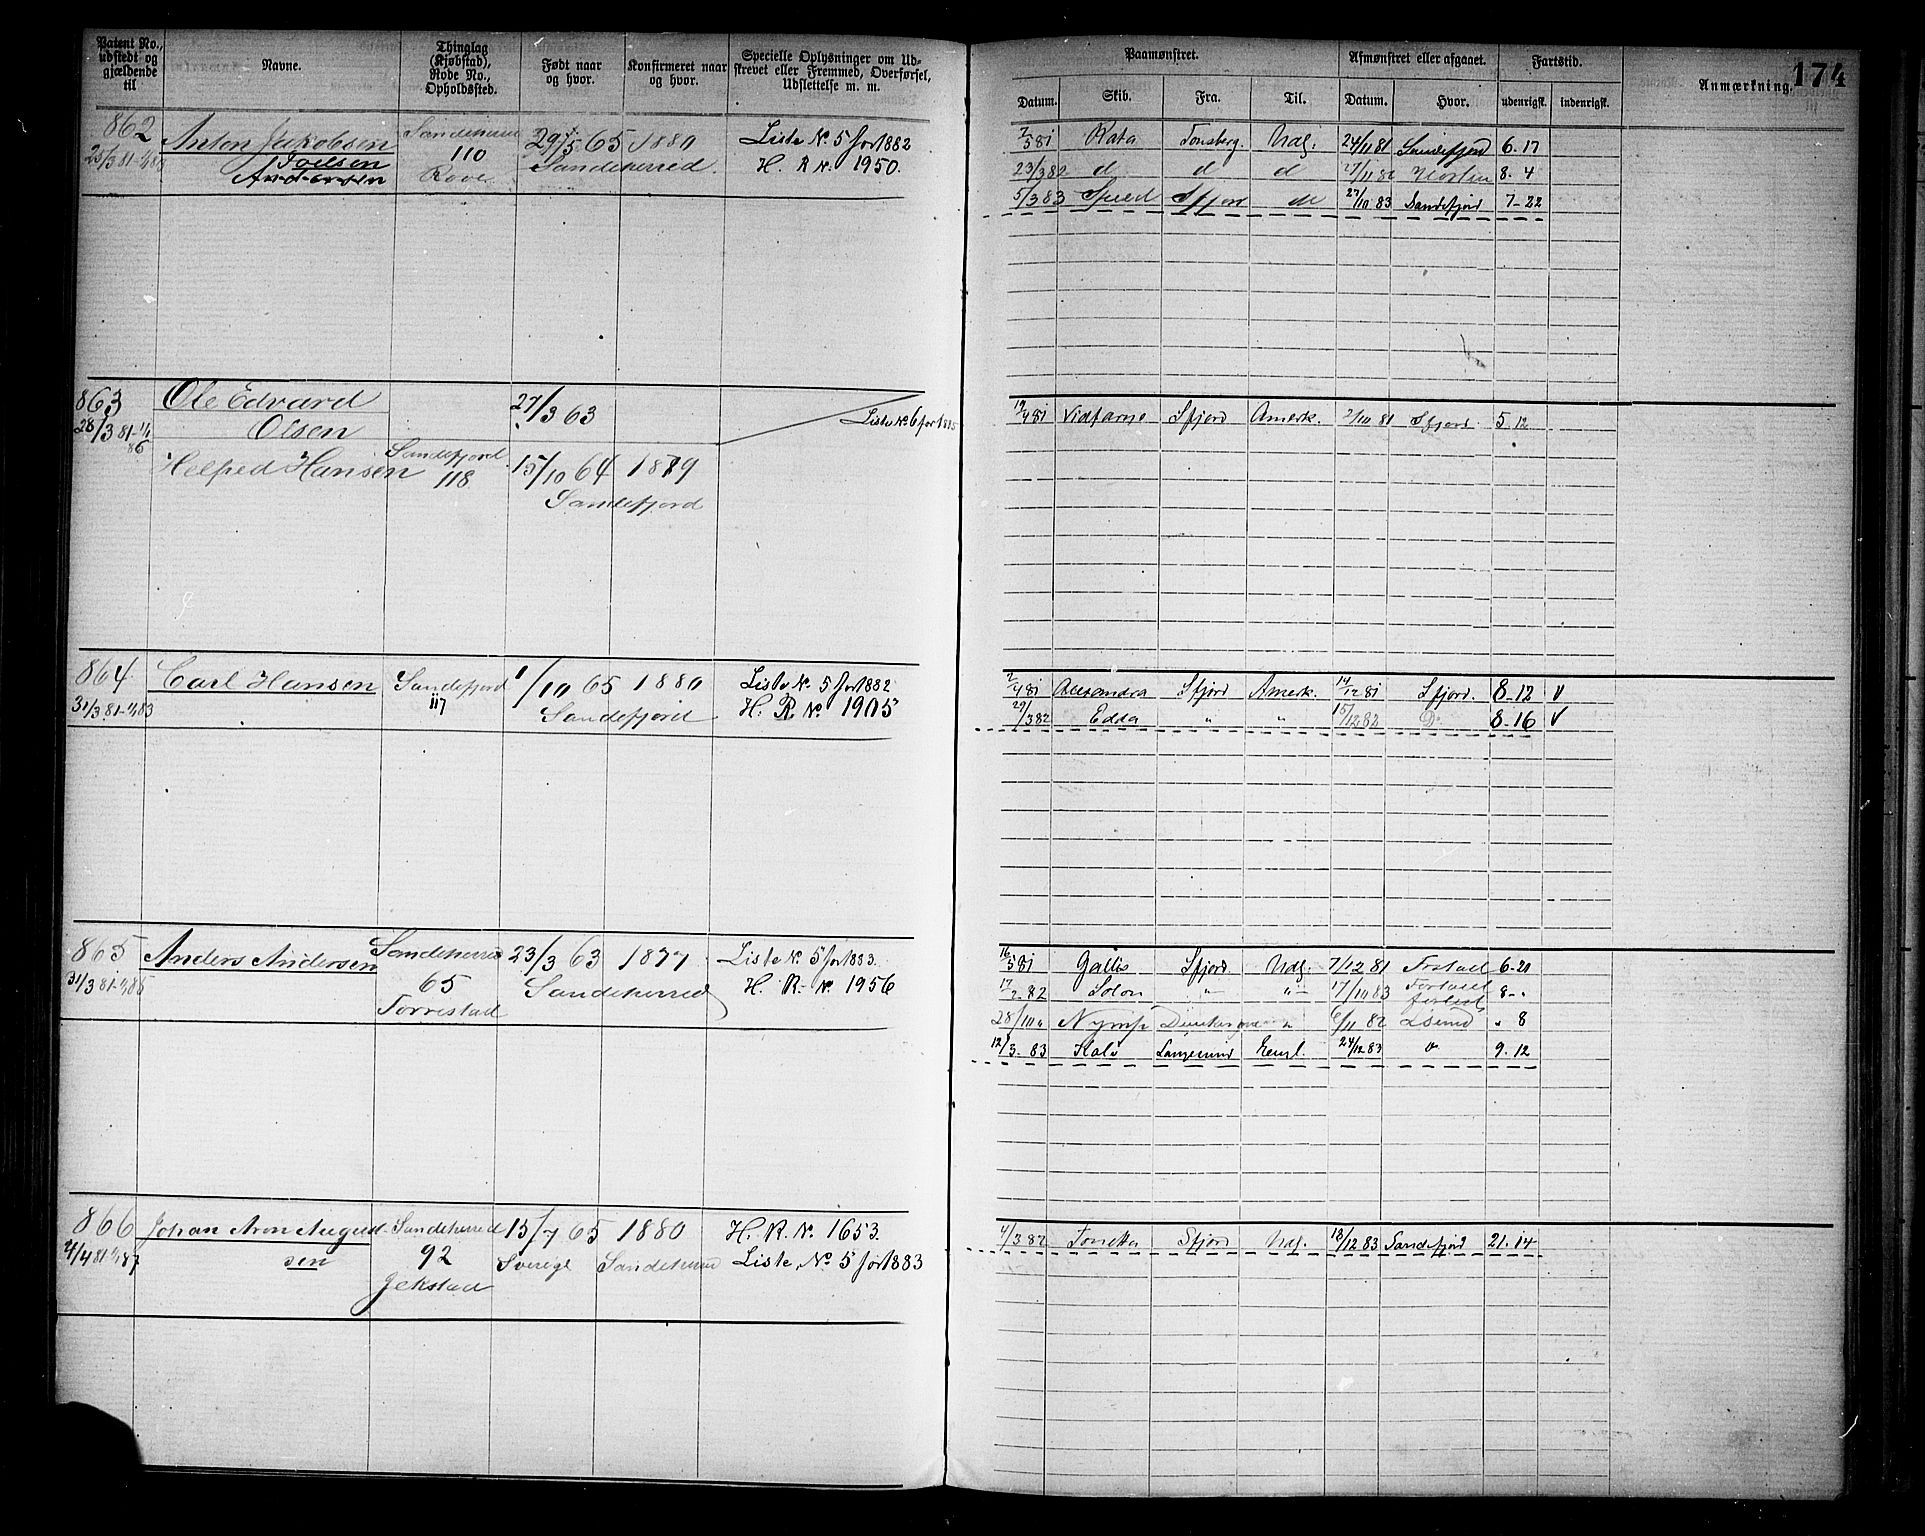 Patent No., udstedt og gjældende til
Navne.
Thinglag (Kjøbstad), Rode No., Opholdssted.
Født naar og hvor.
Konfirmeret naar og hvor.
Specielle Oplysninger om Udskrevet eller Fremmed, Overførsel, Udslettelse m. m.
Paamønstret.
Afmønstret eller afgaaet.
Fartstid.
Anmærkning.
174
Datum. Skib. Fra. Til. Datum. Hvor. udenrigsk. indenrigsk.
862 Anton Jakobsen 110 29/5 65 1880 Liste No. 5 for 1882
25/3 81 Joelsen Sandeherred. H. R No. 1950.
Andersen
7/5 81 Kata Tønsberg Udl. 24/11 81 Sandefjord 6-17
23/3 82 d d d 17/11 82 8-4
5/3 83 Speed Sfjord d 27/10 83 Sandefjord 7-22
863 Ole Edvard 27/3 63
28/3 81-1/4 86 Olsen Liste No. 6 for 1885
Helfred Hansen Sandefjord 118 15/10 64 1879
Sandefjord
19/4 81 Vidfarne Sfjord Amerk. 2/10 81 Sfjord. 5 12
864 Carl Hansen Sandefjord 117 1/10 65 1880 Liste No. 5 for 1882
31/3 81-1/4 83 Sandefjord H. R No. 1905
2/4 81 Alexandra Sfjord Amerk. 14/12 81 Sfjord. 8-12 V
29/3 82 Edda " " 15/12 82 Do 8-16 V
865 Anders Andersen Sandeherred 23/3 63 1877 Liste No. 5 for 1883.
31/3 81-1/4 86 65 Sandeherred H. R No. 1956
Torrestad
16/5 81 Gallis Sfjord Udl. 7/12 81 Frstad 6-21
Solon " " 17/10 83 8-"
28/10 Nymf " 6/11 82 " 8
12/3 83 Langesund Engl. 24/12 83 " 9-12
866 Johan Aron August- Sandeherred 15/7 65 1880 H. R. No. 1653.
4/4 81 1/4 87 sen 92 Sverige Sandeherred Liste No. 5 for 1883
Jekstad
4/3 82 Tonetta Sfjord Udl. 18/12 83 Sandefjord 21.14